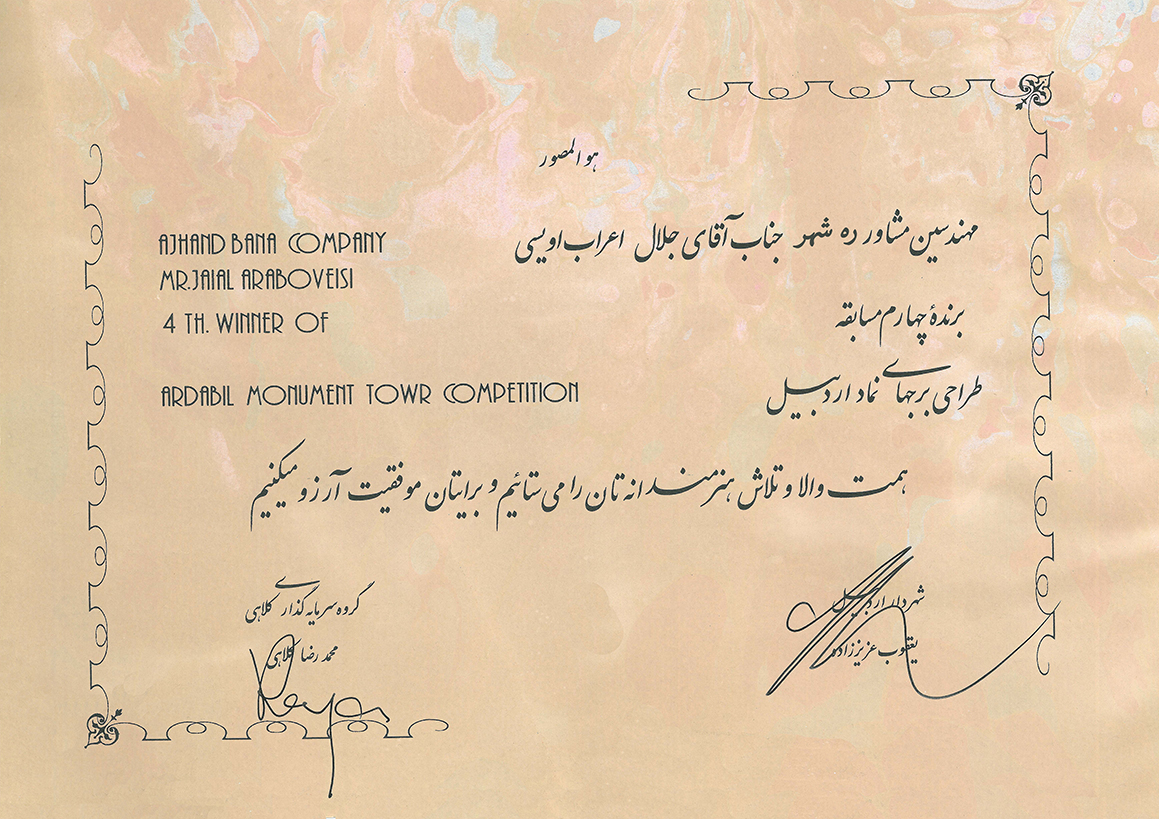 هو المصور
مهندسین مشاور ده شهر جناب آقای جلال اعراب اویسی
AJHAND BANA COMPANY
MR.JAIAL ARABOVEISI
برندهٔ چهارم مسابقه
4 TH. WINNER OF
طراحی برجهای نماد اردبیل
ARDABIL MONUMENT TOWR COMPETITION
همت والا و تلاش هنرمندانه تان را می ستائیم و برایتان موفقیت آرزو میکنیم
شهردار اردبیل
یعقوب عزیززاده
گروه سرمایه گذاری کلاهی
محمد رضا کلاهی